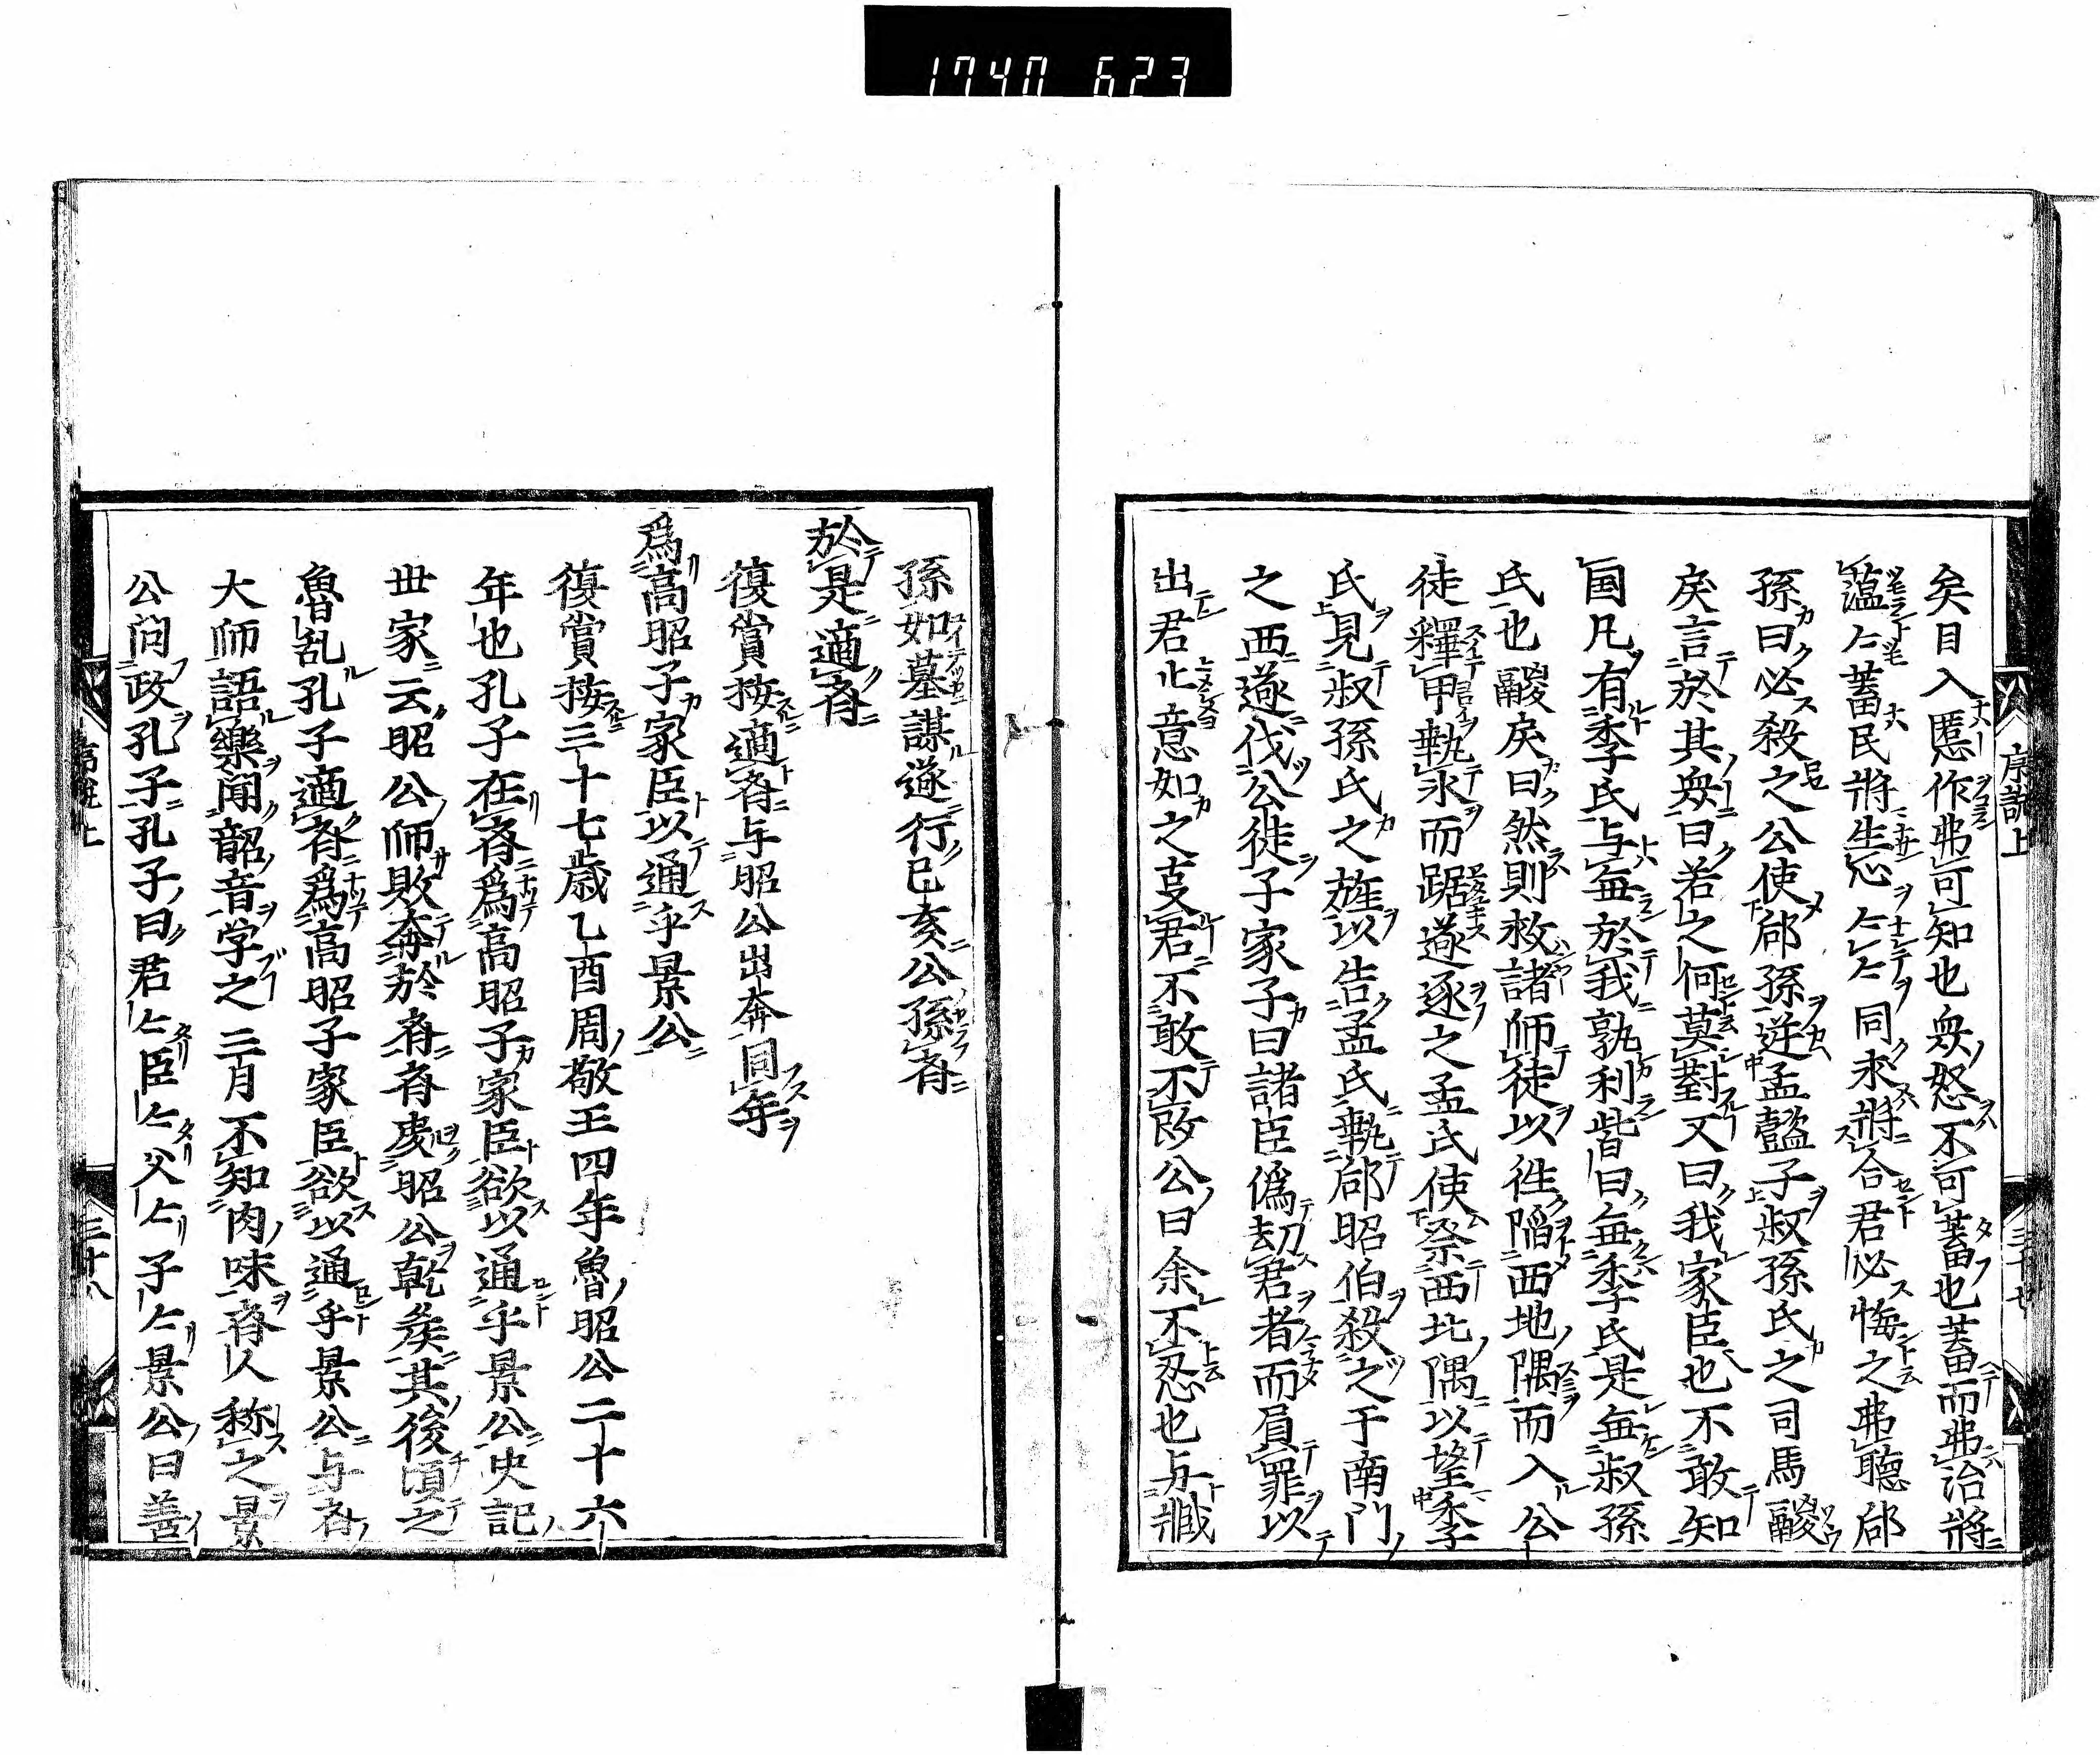 1740 623
序説上
三十七
矣日入慝作弗可知也衆怒不可蓄也蓄而弗治將
薀々蓄民將生心々々同求將合君必悔之弗聴郈
孫曰必殺之公使郈孫逆孟懿子叔孫氏之司馬鬷
戻言於其衆曰若之何莫對又曰我家臣也不敢知
国凡有季氏与無於我孰利皆曰無季氏是無叔孫
氏也鬷戻曰然則救諸師徒以徃陥西地隅而入公
徒釋甲執氷而踞遂逐之孟氏使登西北隅以望季
氏見叔孫氏之旌以告孟氏執郈昭伯殺之于南門
之西遂伐公徒子家子曰諸臣偽劫君者而負罪以
出君止意如之叓君不敢不改公曰余不忍也与臧
孫如墓謀遂行已亥公孫斉
於是適斉
復賞按適斉与昭公出奔同年
為高昭子家臣以通乎景公
復賞按三十七歳乙酉周敬王四年魯昭公二十六
年也孔子在斉為高昭子家臣欲以通乎景公史記
世家云昭公師敗奔於斉斉處昭公乾侯其後頃之
魯乱孔子適斉為高昭子家臣欲以通乎景公与斉
大師語樂聞韶音学之三月不知肉味斉人称之景
公问政孔子孔子曰君々臣々父々子々景公曰善
序説上
三十八